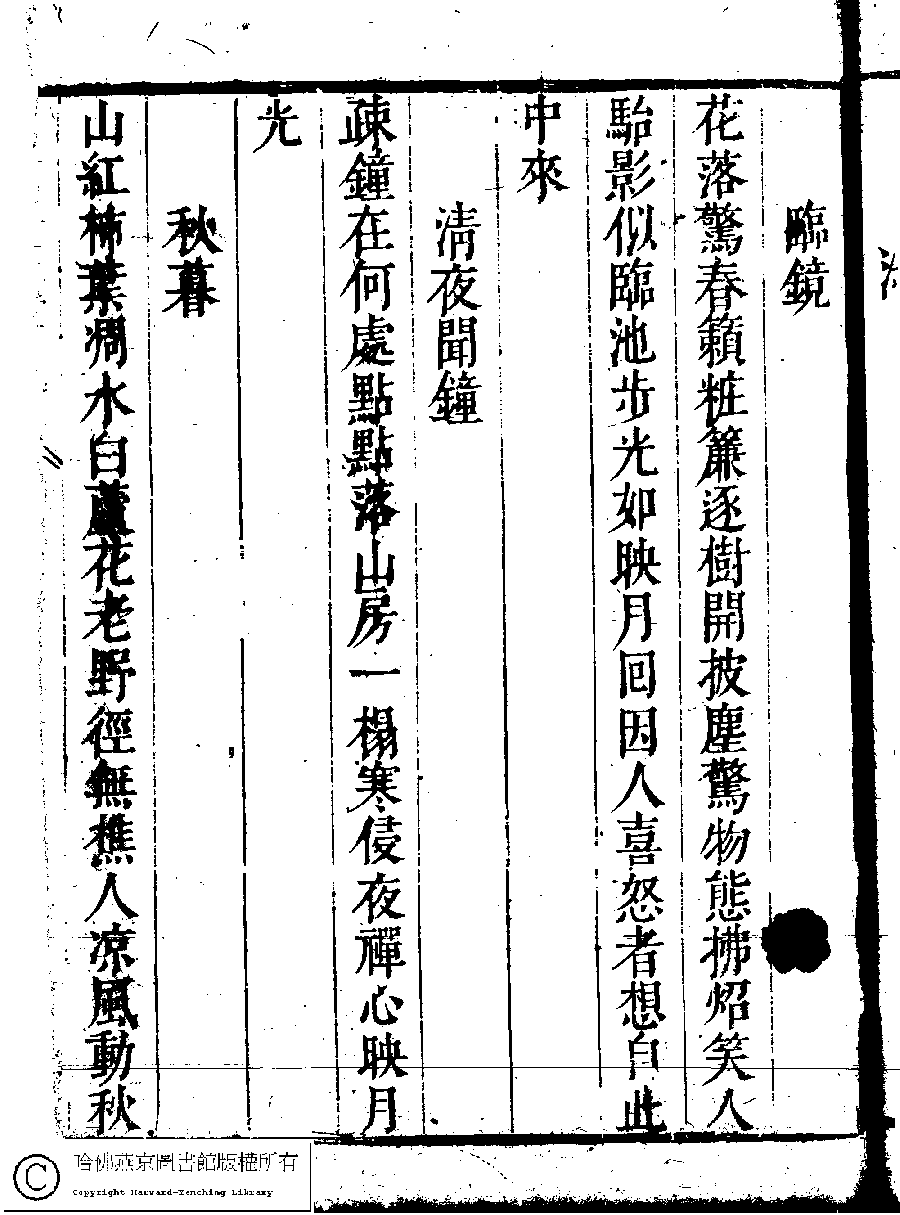 臨鏡
花落驚春籟粧簾逐樹開披塵驚物態拂炤笑人
駘影似臨池步光如映月回因人喜怒者想自此
中來
清夜聞鐘
疎鐘在何處點點落山房一榻寒侵夜禪心映月
光
秋暮
山紅柿葉凋水白蘆花老野徑無樵人凉風動秋
哈佛燕京圖書館版權所有
Copyright Harvard-Yenching Library